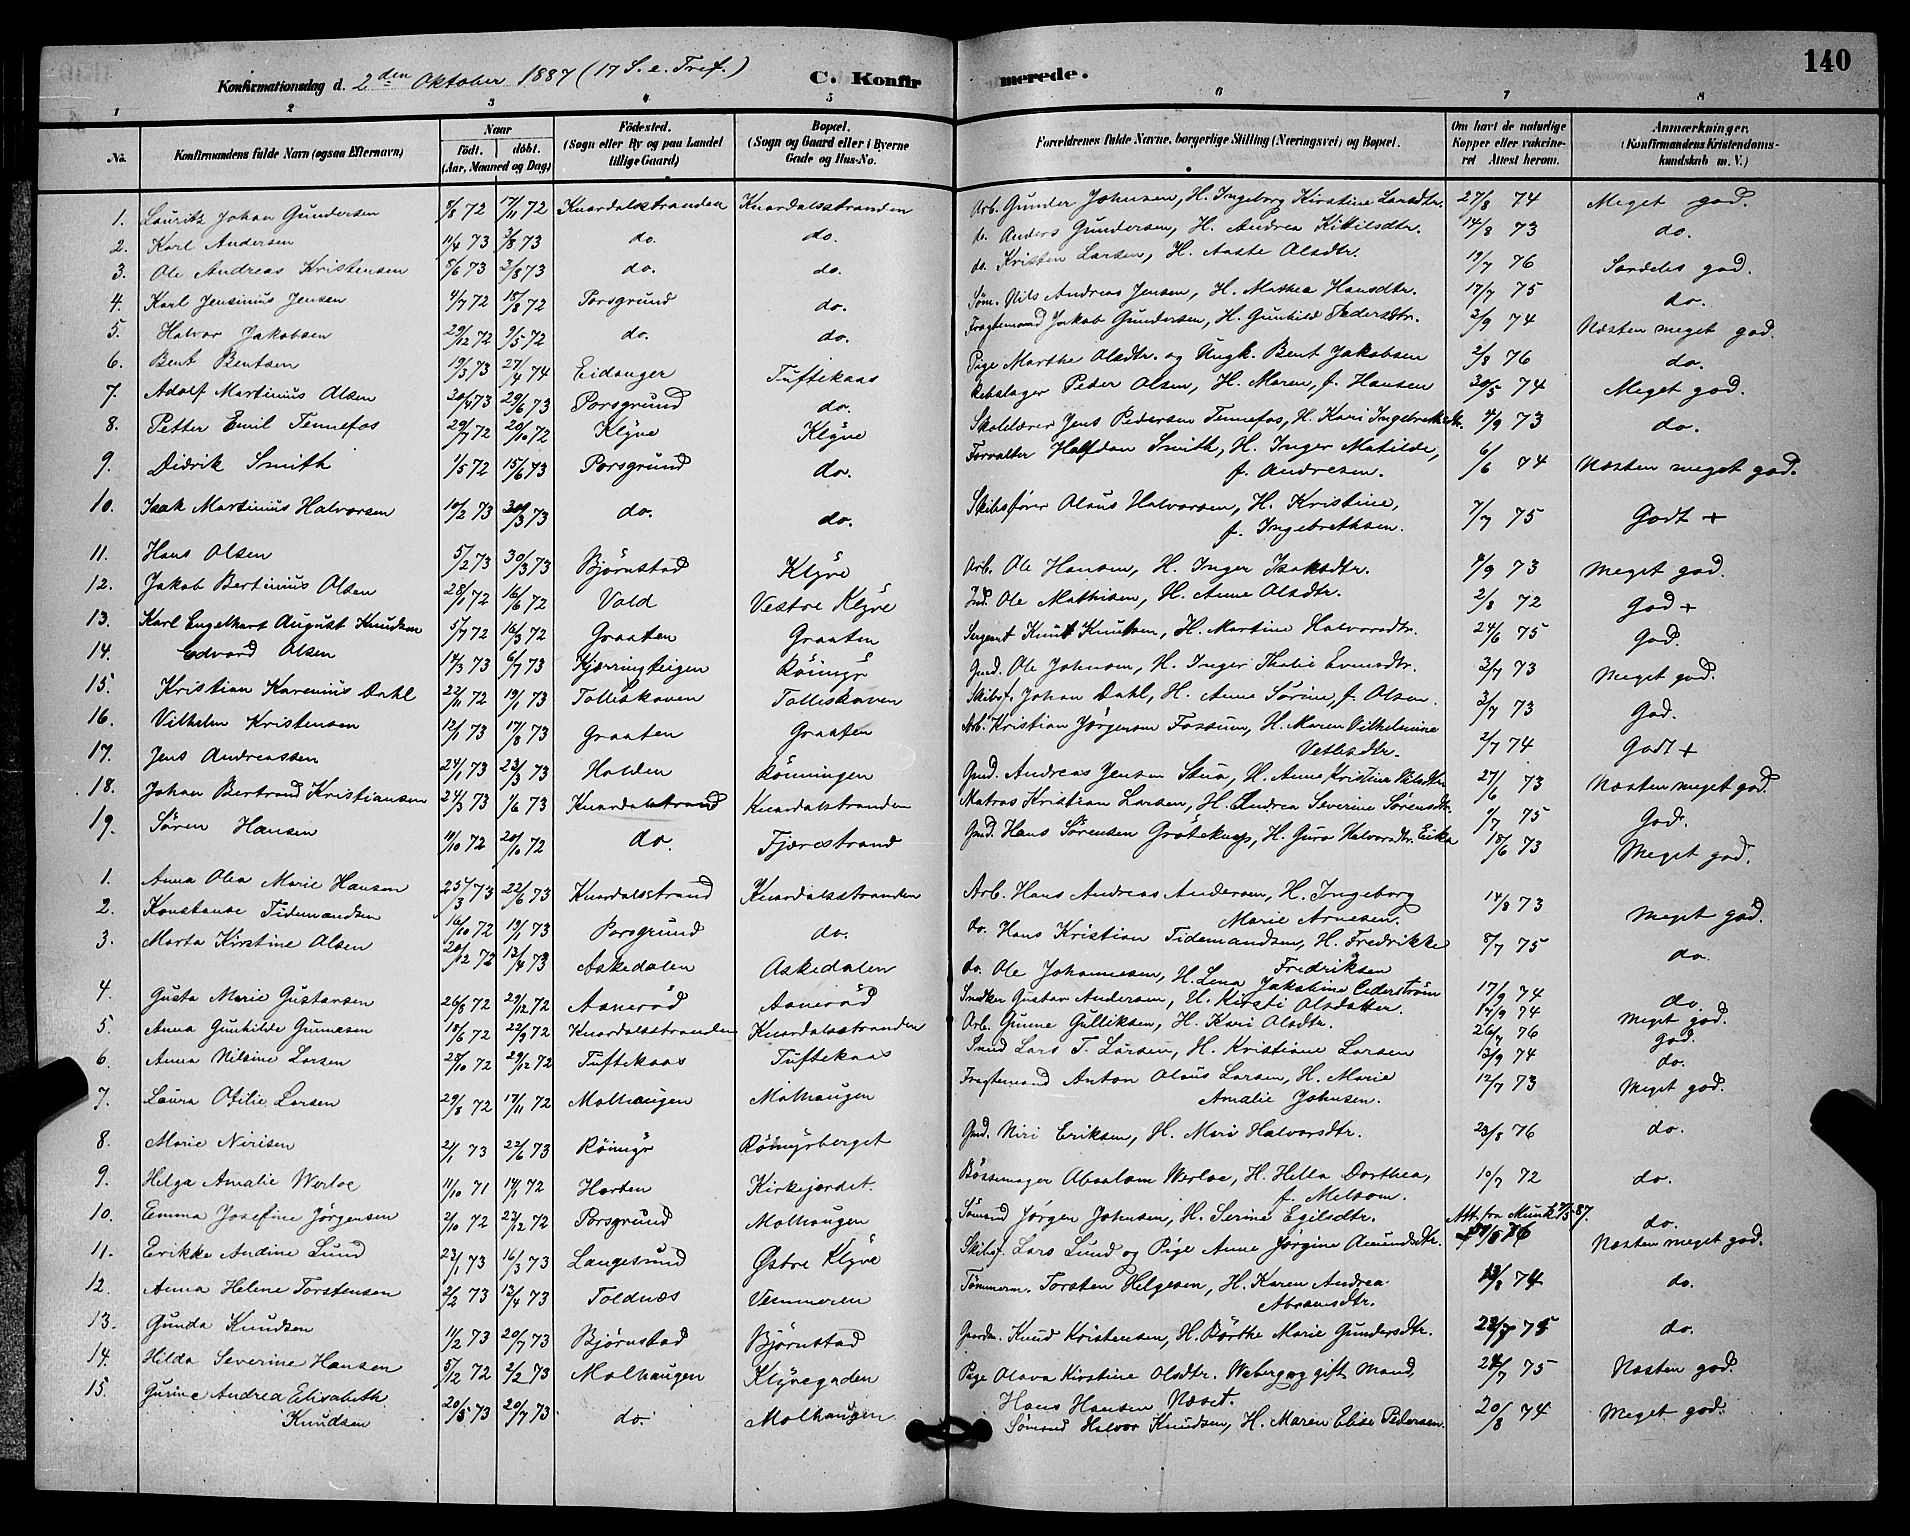 140
Konfirmationsdag d. 2den Oktober 1887 (17 S. e. Tref.) C. Konfirmerede.
1 2 3 4 5 6 7 8
No. Konfirmandens fulde Navn (ogsaa Efternavn) Naar födt. döbt. (Aar, Maaned og Dag) Födested. (Sogn eller By og paa Landet tillige Gaard) Bopæl. (Sogn og Gaard eller i Byerne Gade og Hus-No. Forældrenes fulde Navne, borgerlige Stilling (Næringsvei) og Bopæl. Om havt de naturlige Kopper eller vaccineret Attest herom. Anmærkninger. (Konfirmandens Kristendomskundskab m. V.)
1. Lauritz Johan Gundersen 8/8 72 17/11 72 Knardalstranden Knardalsstranden Arb. Gunder Johnsen, H. Ingeborg Kirstine Larsdtr. 27/8 74 Meget god.
2. Karl Andersen 11/4 73 3/8 73 do. do. do. Anders Gundersen, H. Andrea Kittilsdtr. 14/8 73 do.
3. Ole Andreas Kristensen 8/6 73 3/8 73 do. do. do. Kristen Larsen, H. Aaste Olsdtr. 19/7 76 Særdeles god.
4. Karl Jensinius Jensen 4/7 72 18/8 72 Porsgrund do. Söm. Nils Andreas Jensen, H. Mathea Hansdtr. 17/7 75 do.
5. Halvor Jakobsen 29/12 72 9/5 72 do. do. Fragtemand Jakob Gundersen, H. Gunhild Pedersdtr. 2/9 74 Næsten meget god.
6. Bent Bentsen 19/3 73 27/4 74 Eidanger Tuftekaas Pige Marthe Olsdtr. og Ungk. Bent Jakobsen 2/8 76 do.
7. Adolf Martinius Olsen 20/4 73 29/6 73 Porsgrund do. Rebslager Peder Olsen, H. Maren, f. Hansen 30/5 74 Meget god.
8. Petter Emil Tennefos 29/7 72 20/10 72 Klyve Klyve Skolelærer Jens Pedersen Tennefos, H. Kari Ingebrethsdtr. 4/9 73 do.
9. Didrik Smith 1/5 72 15/6 73 Porsgrund do. Forvalter Halfdan Smith, H. Inger Matilde, f. Andresen. 6/6 74 Næsten meget god.
10. Isak Martinius Halvorsen 10/2 73 30/3 73 do. do. Skibsförer Olaus Halvorsen, H. Kristine, f. Ingebrethsen. 7/7 75 Godt +
11. Hans Olsen 5/2 73 30/3 73 Björnstad Klyve Arb. Ole Hansen, H. Inger Isaksdtr. 9/9 73 Meget god.
12. Jakob Bertinius Olsen 28/1 72 16/6 72 Vold Vestre Klyve Ind. Ole Mathisen, H. Anne Olsdtr. 2/8 72 God +
13. Karl Engelhart August Knudsen 5/7 72 16/3 72 Graaten Graaten Sergeant Knut Knutsen, H. Martine Halvorsdtr. 24/6 75 God.
14. Edvard Olsen 14/3 73 6/7 73 Kjærringteigen Röimyr Gmd. Ole Johnsen, H. Inger Thalie Evensdtr. 3/7 73 Meget god.
15. Kristian Karenius Dahl 22/11 72 19/1 73 Tolleskoven Tolliskoven Skibsf. Johan Dahl, H. Anne Sörine, f. Olsen. 3/7 73 God.
16. Vilhelm Kristensen 12/1 73 17/8 73 Graaten Graaten Arb. Kristian Jörgensen Fossum, H. Maren Vilhelmine Vetlesdtr. 2/7 74 Godt +
17. Jens Andreassen 24/1 73 23/3 73 Holden Rönningen Gmd. Andreas Jensen Skua, H. Anne Kristine Nilsdtr. 27/6 73 Næsten meget god.
18. Johan Bertrand Kristiansen 24/3 73 1/6 73 Knardalstrand Knardalstranden Matros Kristian Larsen, H. Andrea Severine Sörensdtr. 9/7 75 God.
19. Sören Hansen 11/10 72 20/10 72 do. Fjærestrand Gmd. Hans Sörensen Grötekop, H. Guro Halvorsdtr. Eika 18/6 73 Meget god.
1. Anna Olea Marie Hansen 25/3 73 22/6 73 Knardalsstrand Knardalsstranden Arb. Hans Andreas Andersen, H. Ingeborg Marie Arnesen. 14/8 73 Meget god.
2. Konstanse Tidemandsen 16/10 72 19/1 73 Porsgrund do. do. Hans Kristian Tidemandsen, H. Fredrikke Fredriksen 8/7 75 do.
3. Marta Kirstine Olsen 20/12 72 13/4 73 Askedalen Askedalen do. Ole Johannesen, H. Lena Jakobine Cederström 17/9 74 do.
4. Gusta Marie Gustavsen 26/8 72 29/12 72 Aaneröd Aaneröd Snedker Gustav Andersen, H. Kirsti Olsdatter. 17/9 74 Meget god.
5. Anna Gunhilde Gunnesen 18/6 72 22/9 72 Knardalsstranden Knardalsstranden Arb. Gunne Gulliksen, H. Kari Olsdtr. 26/7 76 god.
6. Anna Nilsine Larsen 28/10 72 29/12 72 Tuftekaas Tuftekaas Smed Lars T. Larsen, H. Kristiane Larsen 13/9 74 do.
7. Laura Otilie Larsen 29/8 72 17/11 72 Molhaugen Molhaugen Fragtemand Anton Olaus Larsen, H. Marie Amalie Johnsen. 12/7 73 Meget god.
8. Marie Nirisen 2/1 73 22/6 73 Röimyr Röimyrberget Gmd. Niri Eriksen, H. Mari Halvorsdtr. 23/8 76 do.
9. Helga Amalie Werloe 11/10 71 14/1 72 Horten Kirkejordet. Bössemager Absalom Werloe, H. Hella Dorthea, f. Melsom. 10/7 72 do.
10. Emma Josefine Jörgensen 2/10 72 23/12 72 Porsgrund Molhaugen Sömand Jörgen Johnsen, H. Serine Egilsdtr. Att. fra Munk 7/5 87. do.
11. Erikke Andine Lund 23/1 73 16/3 73 Langesund Östre Klyve Skibsf. Lars Lund og Pige Anne Jörgine Amundsdtr. 76 Næsten meget god.
12. Anna Helene Torstensen 2/2 73 12/4 73 Toldnæs Vemmeren Tömmerm. Torsten Helgesen, H. Karen Andrea Abramsdtr. 13/8 74 do.
13. Gunda Knudsen 11/2 73 20/7 73 Björnstad Björnstad Gaardm. Knud Kristensen, H. Börthe Marie Gundersdtr. 23/7 75 do.
14. Hilda Severine Hansen 5/12 72 2/2 73 Molhaugen Klyvegaden Pige Olava Kirstine Olsdtr. Weberg og gift Mand, Hans Hansen Næset. 24/7 75 Næsten god.
15. Gurine Andrea Elisabeth Knudsen 20/5 73 20/7 73 do. Molhaugen Sömand Halvor Knudsen, H. Maren Elise Pedersen. 20/8 74 Meget god.